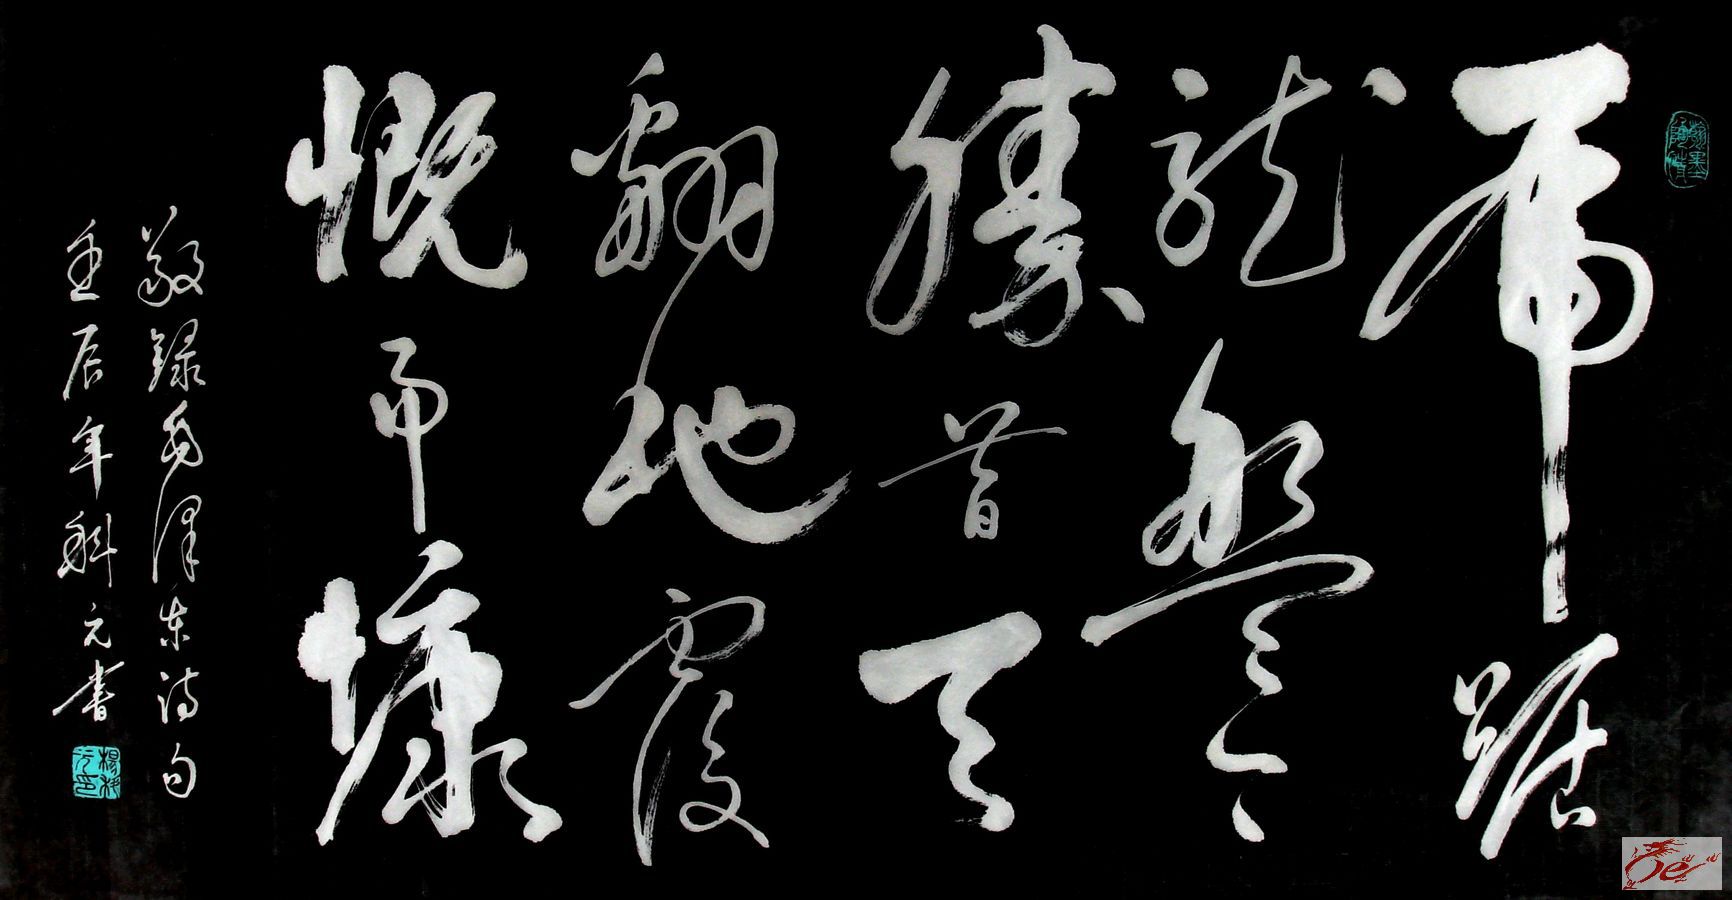 虎踞
龍盤今
勝昔天
翻地覆
慨而慷
敬録毛澤東詩句
壬辰年科元書